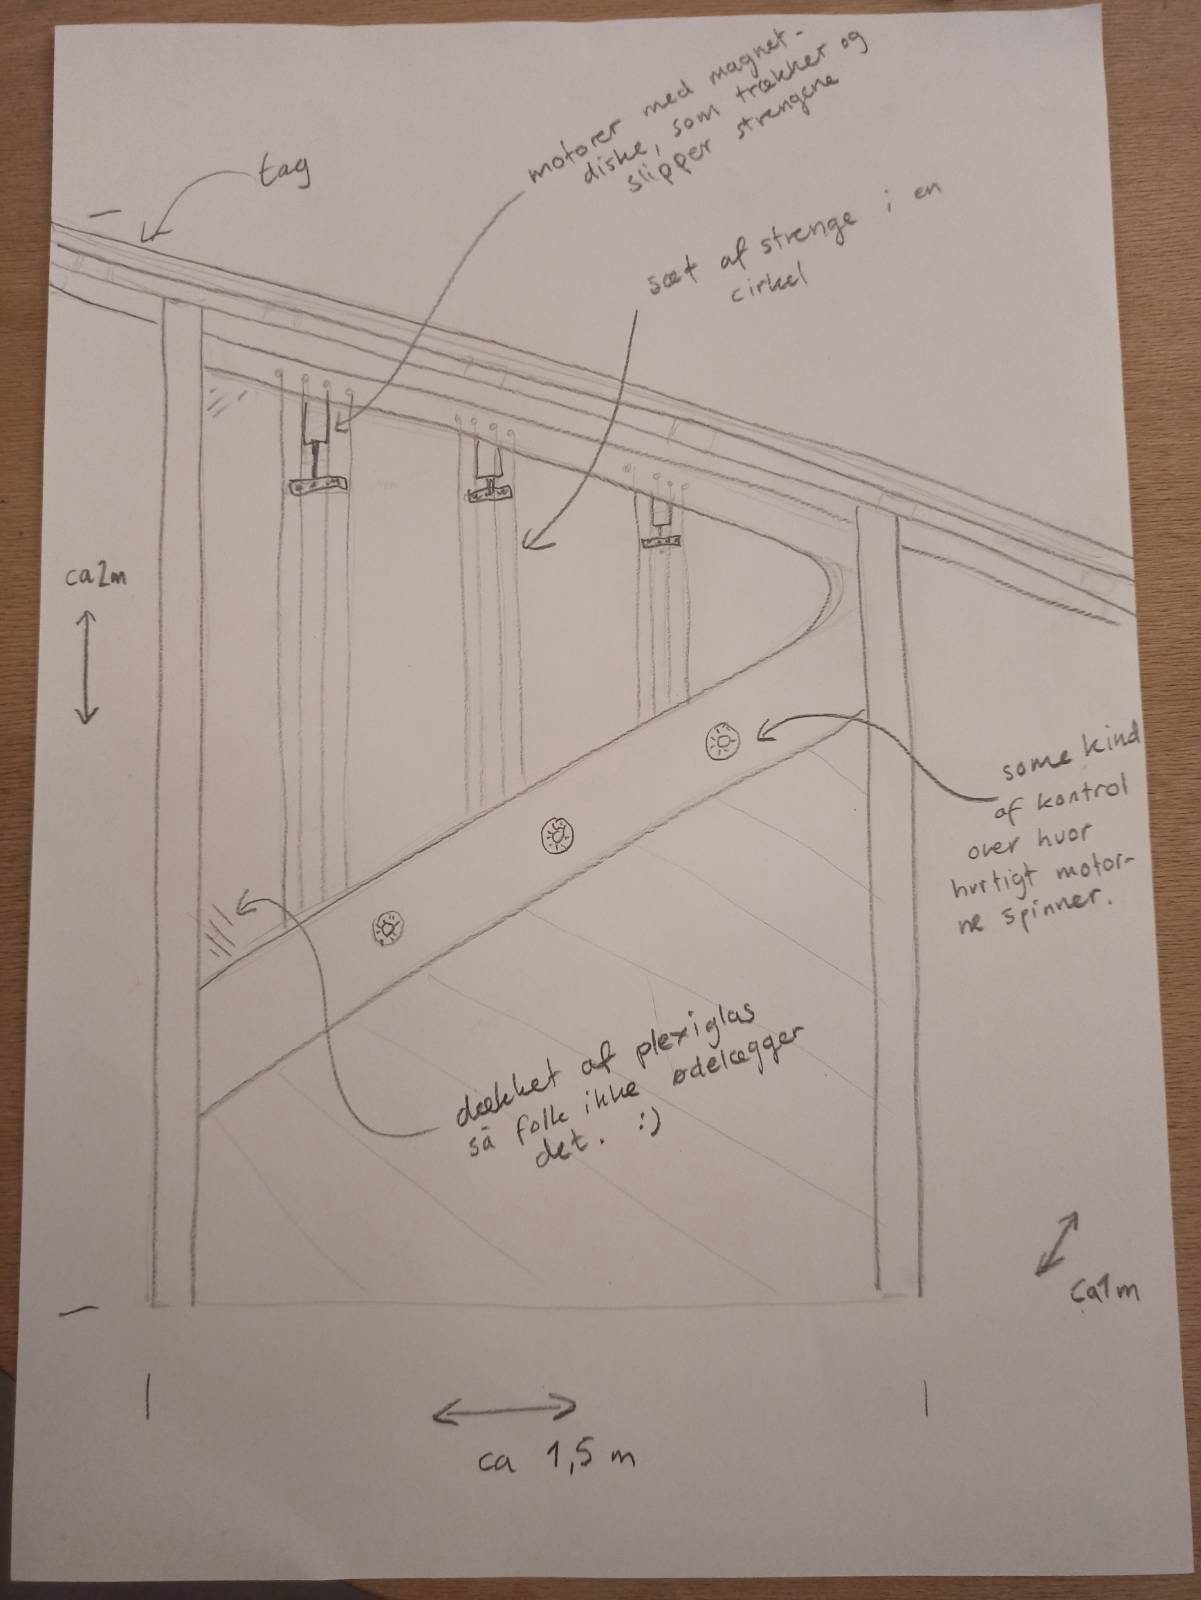 motorer med magnet-
diske, som trækker og
slipper strengene
tag
sæt af strenge i en
cirkel
ca 2m
some kind
af kontrol
over hvor
hurtigt motor-
ne spinner.
dækket af plexiglas
så folk ikke ødelægger
det. :)
ca 1m
ca 1,5 m